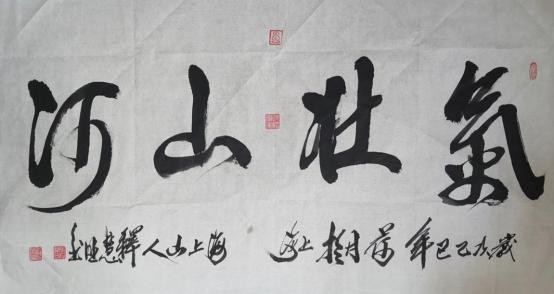 氣壮山河
歲次乙巳年荷月於上海 海上山人釋慧